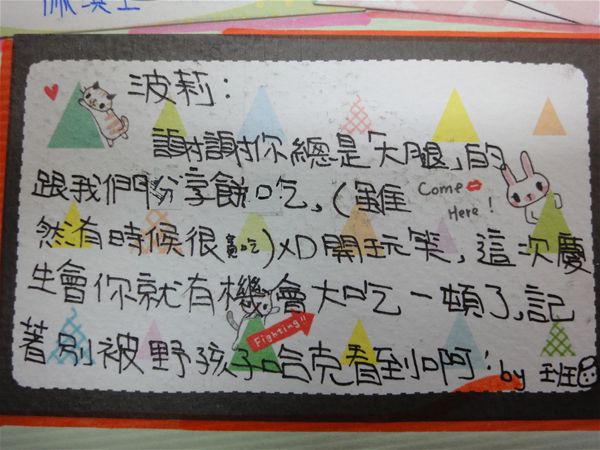 波莉：
謝謝你總是「大腿」的
跟我們分享餅吃，(雖
Come
Here!
然有時候很貪吃)XD開玩笑，這次慶
生會你就有機會大吃一頓了，記
Fighting!!
著別被野孩子哈克看到啊！by 班